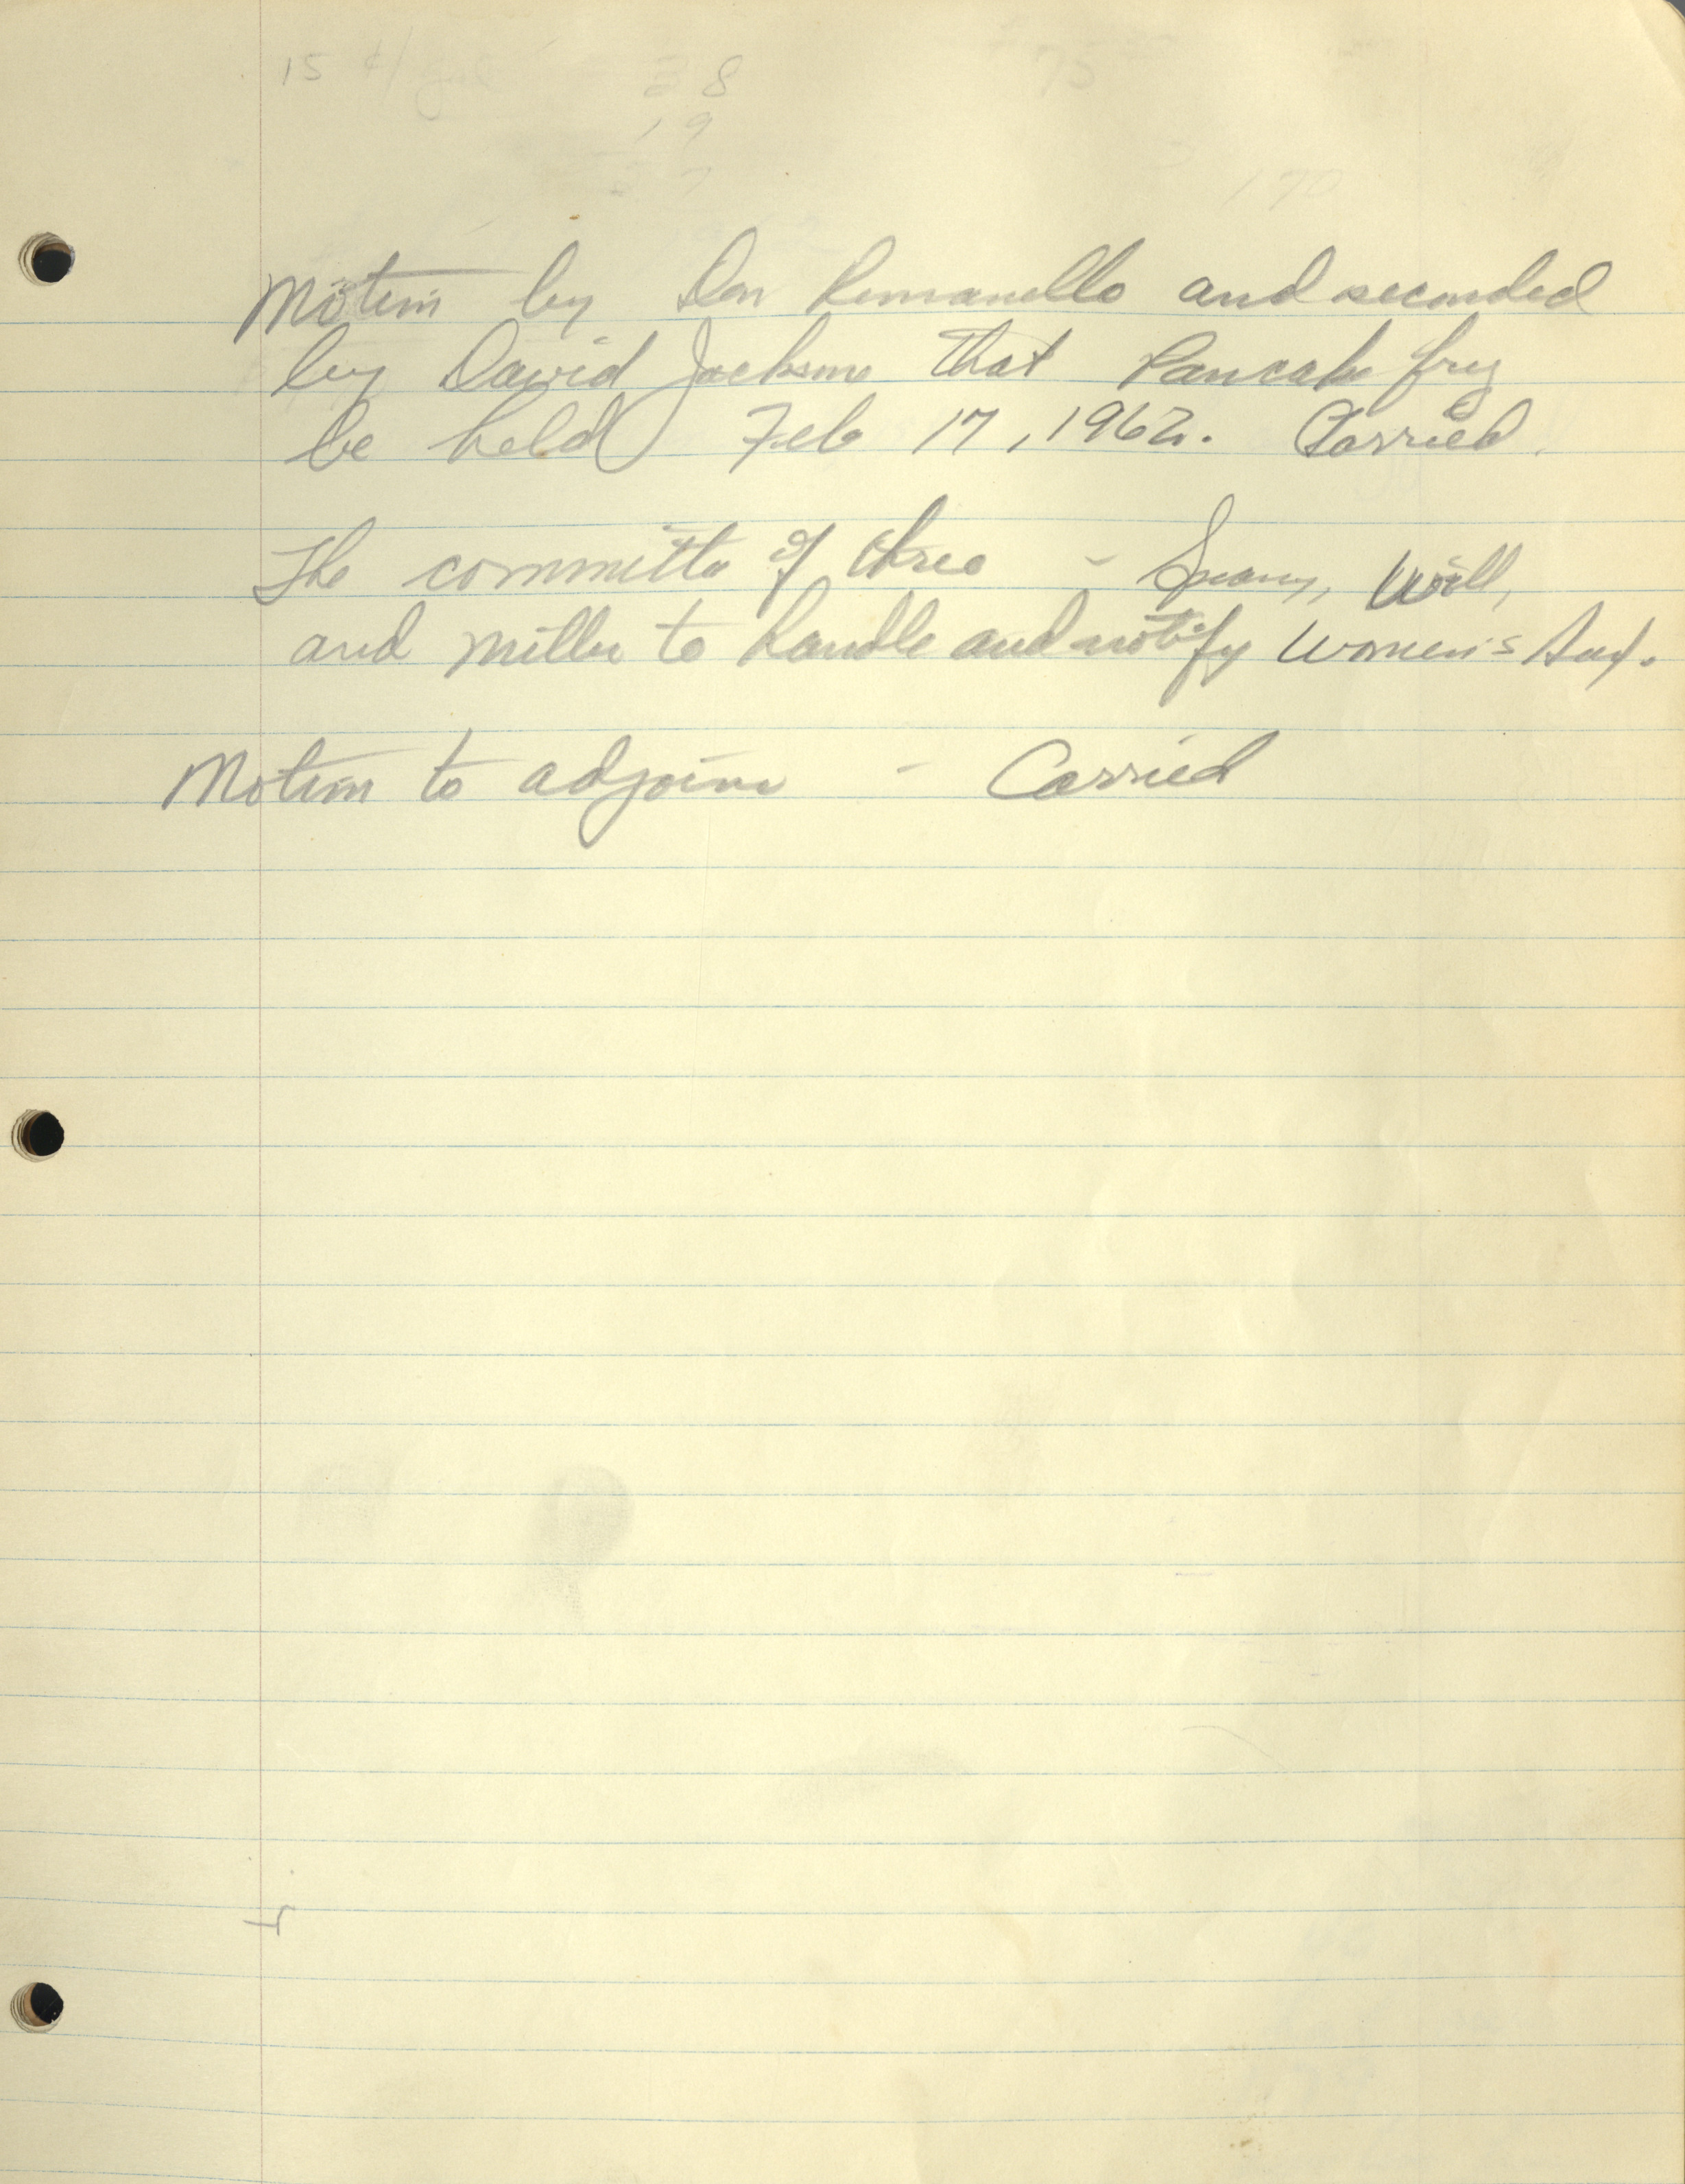 15 ¢/gal 38 75
19
57 170
Motion by Don Romanello and seconded
by David Jackson that Pancake fry
be held Feb 17, 1962. Carried.
The committe of three - Spany, Will,
and Miller to handle and notify Women's Aux.
Motion to adjoin - Carried